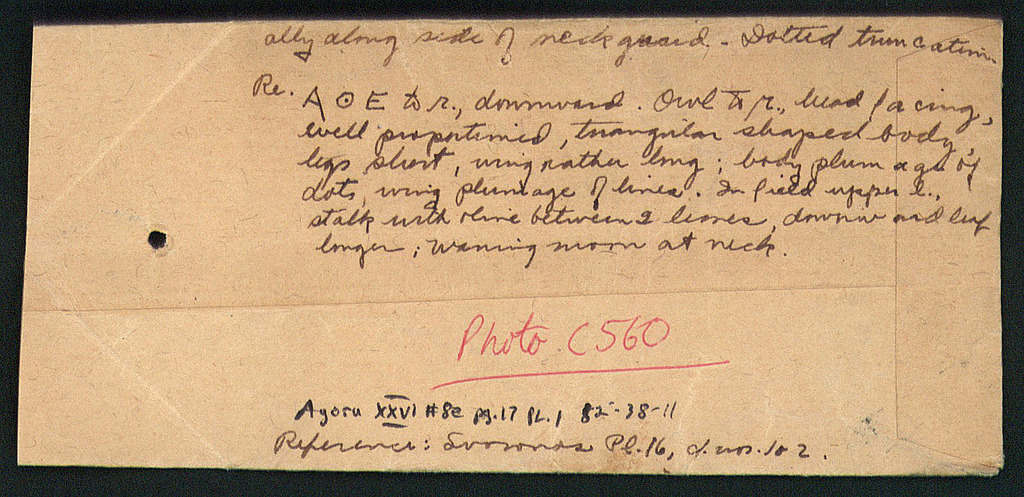 ally along side of neckguard. - Dotted truncation.
Re. A Θ E to r., downward. Owl to r., head facing,
well proportioned, triangular shaped body,
legs short, wing rather long; body plumage of
dots, wing plumage of lines. In field upper l.,
stalk with olive between 2 leaves, downward leaf
longer; waning moon at neck.
Photo C560
Agora XXVI #8e pg.17 PL.1 82-38-11
Reference: Svoronos Pl.16, cf. nos. 1o 2.